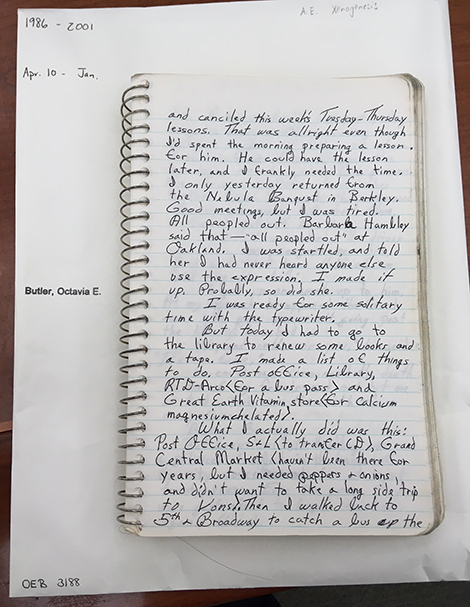 A.E. Xenogenesis
1986 - 2001
Apr. 10 - Jan.
and canciled this week's Tuesday-Thursday
lessons. That was allright even though
I'd spent the morning preparing a lesson
for him. He could have the lesson
later, and I frankly needed the time.
I only yesterday returned from
the Nebula Banquet in Berkley.
Good meetings, but I was tired.
All peopled out. Barbara Hambley
said that—"all peopled out" at
Oakland. I was startled, and told
her I had never heard anyone else
use the expression. I made it
up. Probally, so did she.
I was ready for some solitary
time with the typewriter.
But today I had to go to
the library to renew some books and
a tape. I made a list of things
to do. Post office, Library,
RTD-Arco<for a bus pass> and
Great Earth Vitamin store<for calcium
magnesium chelated>.
What I actually did was this:
Post Office, S&L<to tranfer CD>, Grand
Central Market <haven't been there for
years, but I needed peppers & onions,
and didn't want to take a long side trip
to Vons. Then I walked back to
5th & Broadway to catch a bus up the
Butler, Octavia E.
OEB 3188